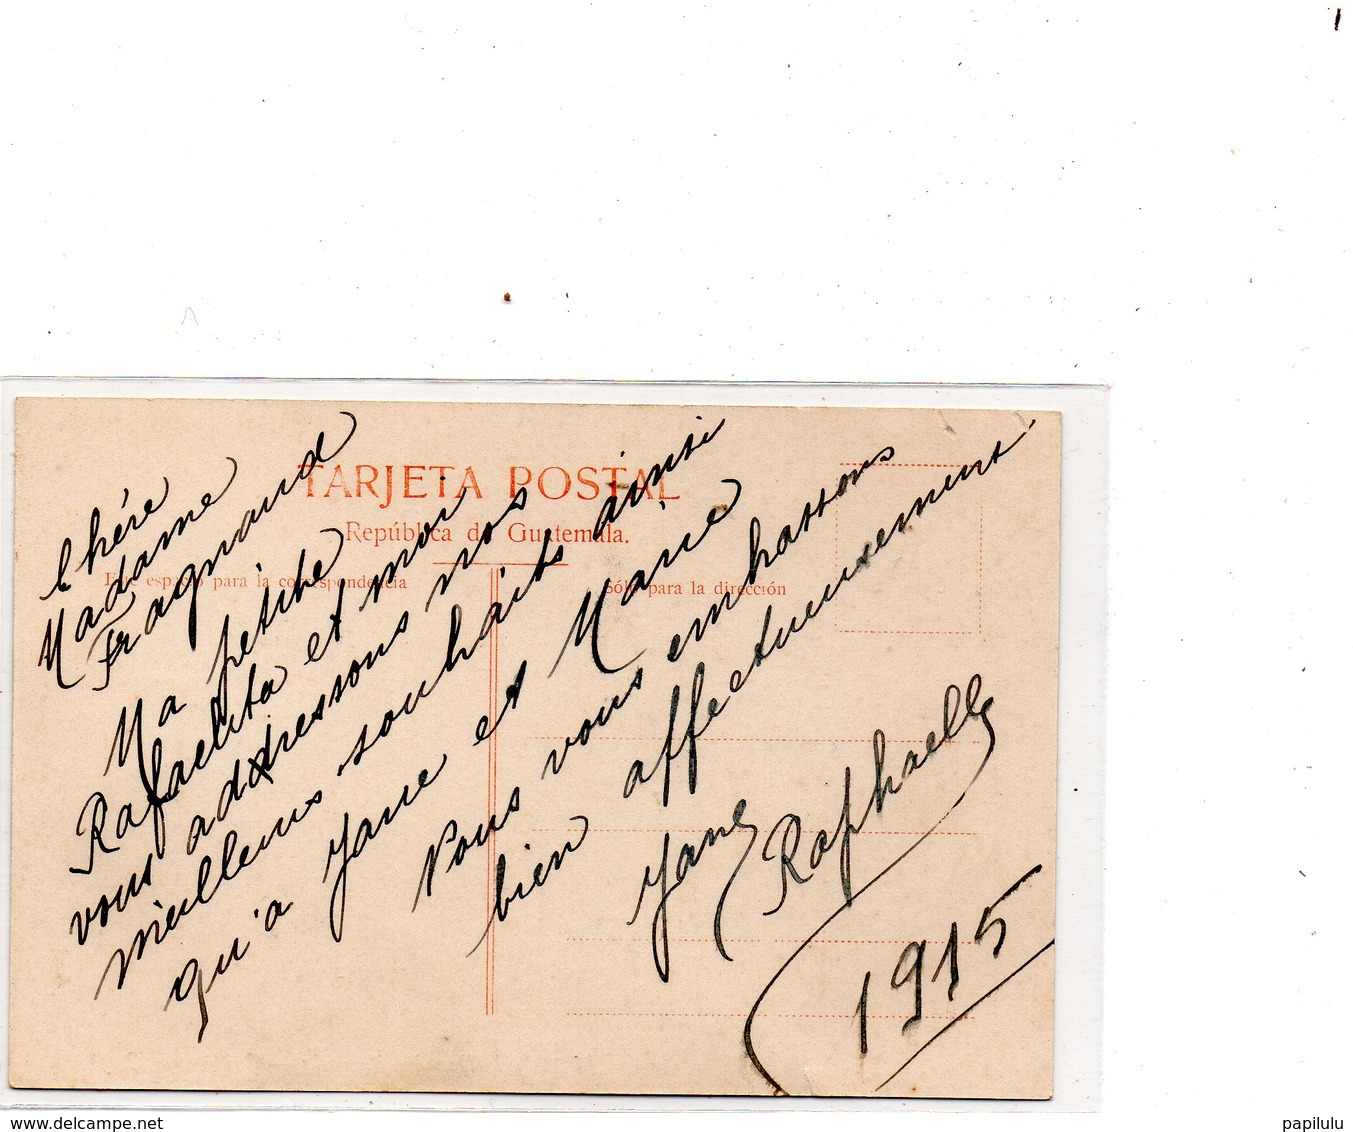 TARJETA POSTAL
República de Guatemala.
Este espacio para la correspondencia
Sólo para la dirección
Chére
Madame
Fragnaud
Ma petite
Rafaelita et moi
vous addressons nos
meilleurs souhaits ainsi
qu'a Jane et Marie
Nous vous embrassons
bien affectueusement
Jane Raphaelle
1915
www.delcampe.net
papilulu